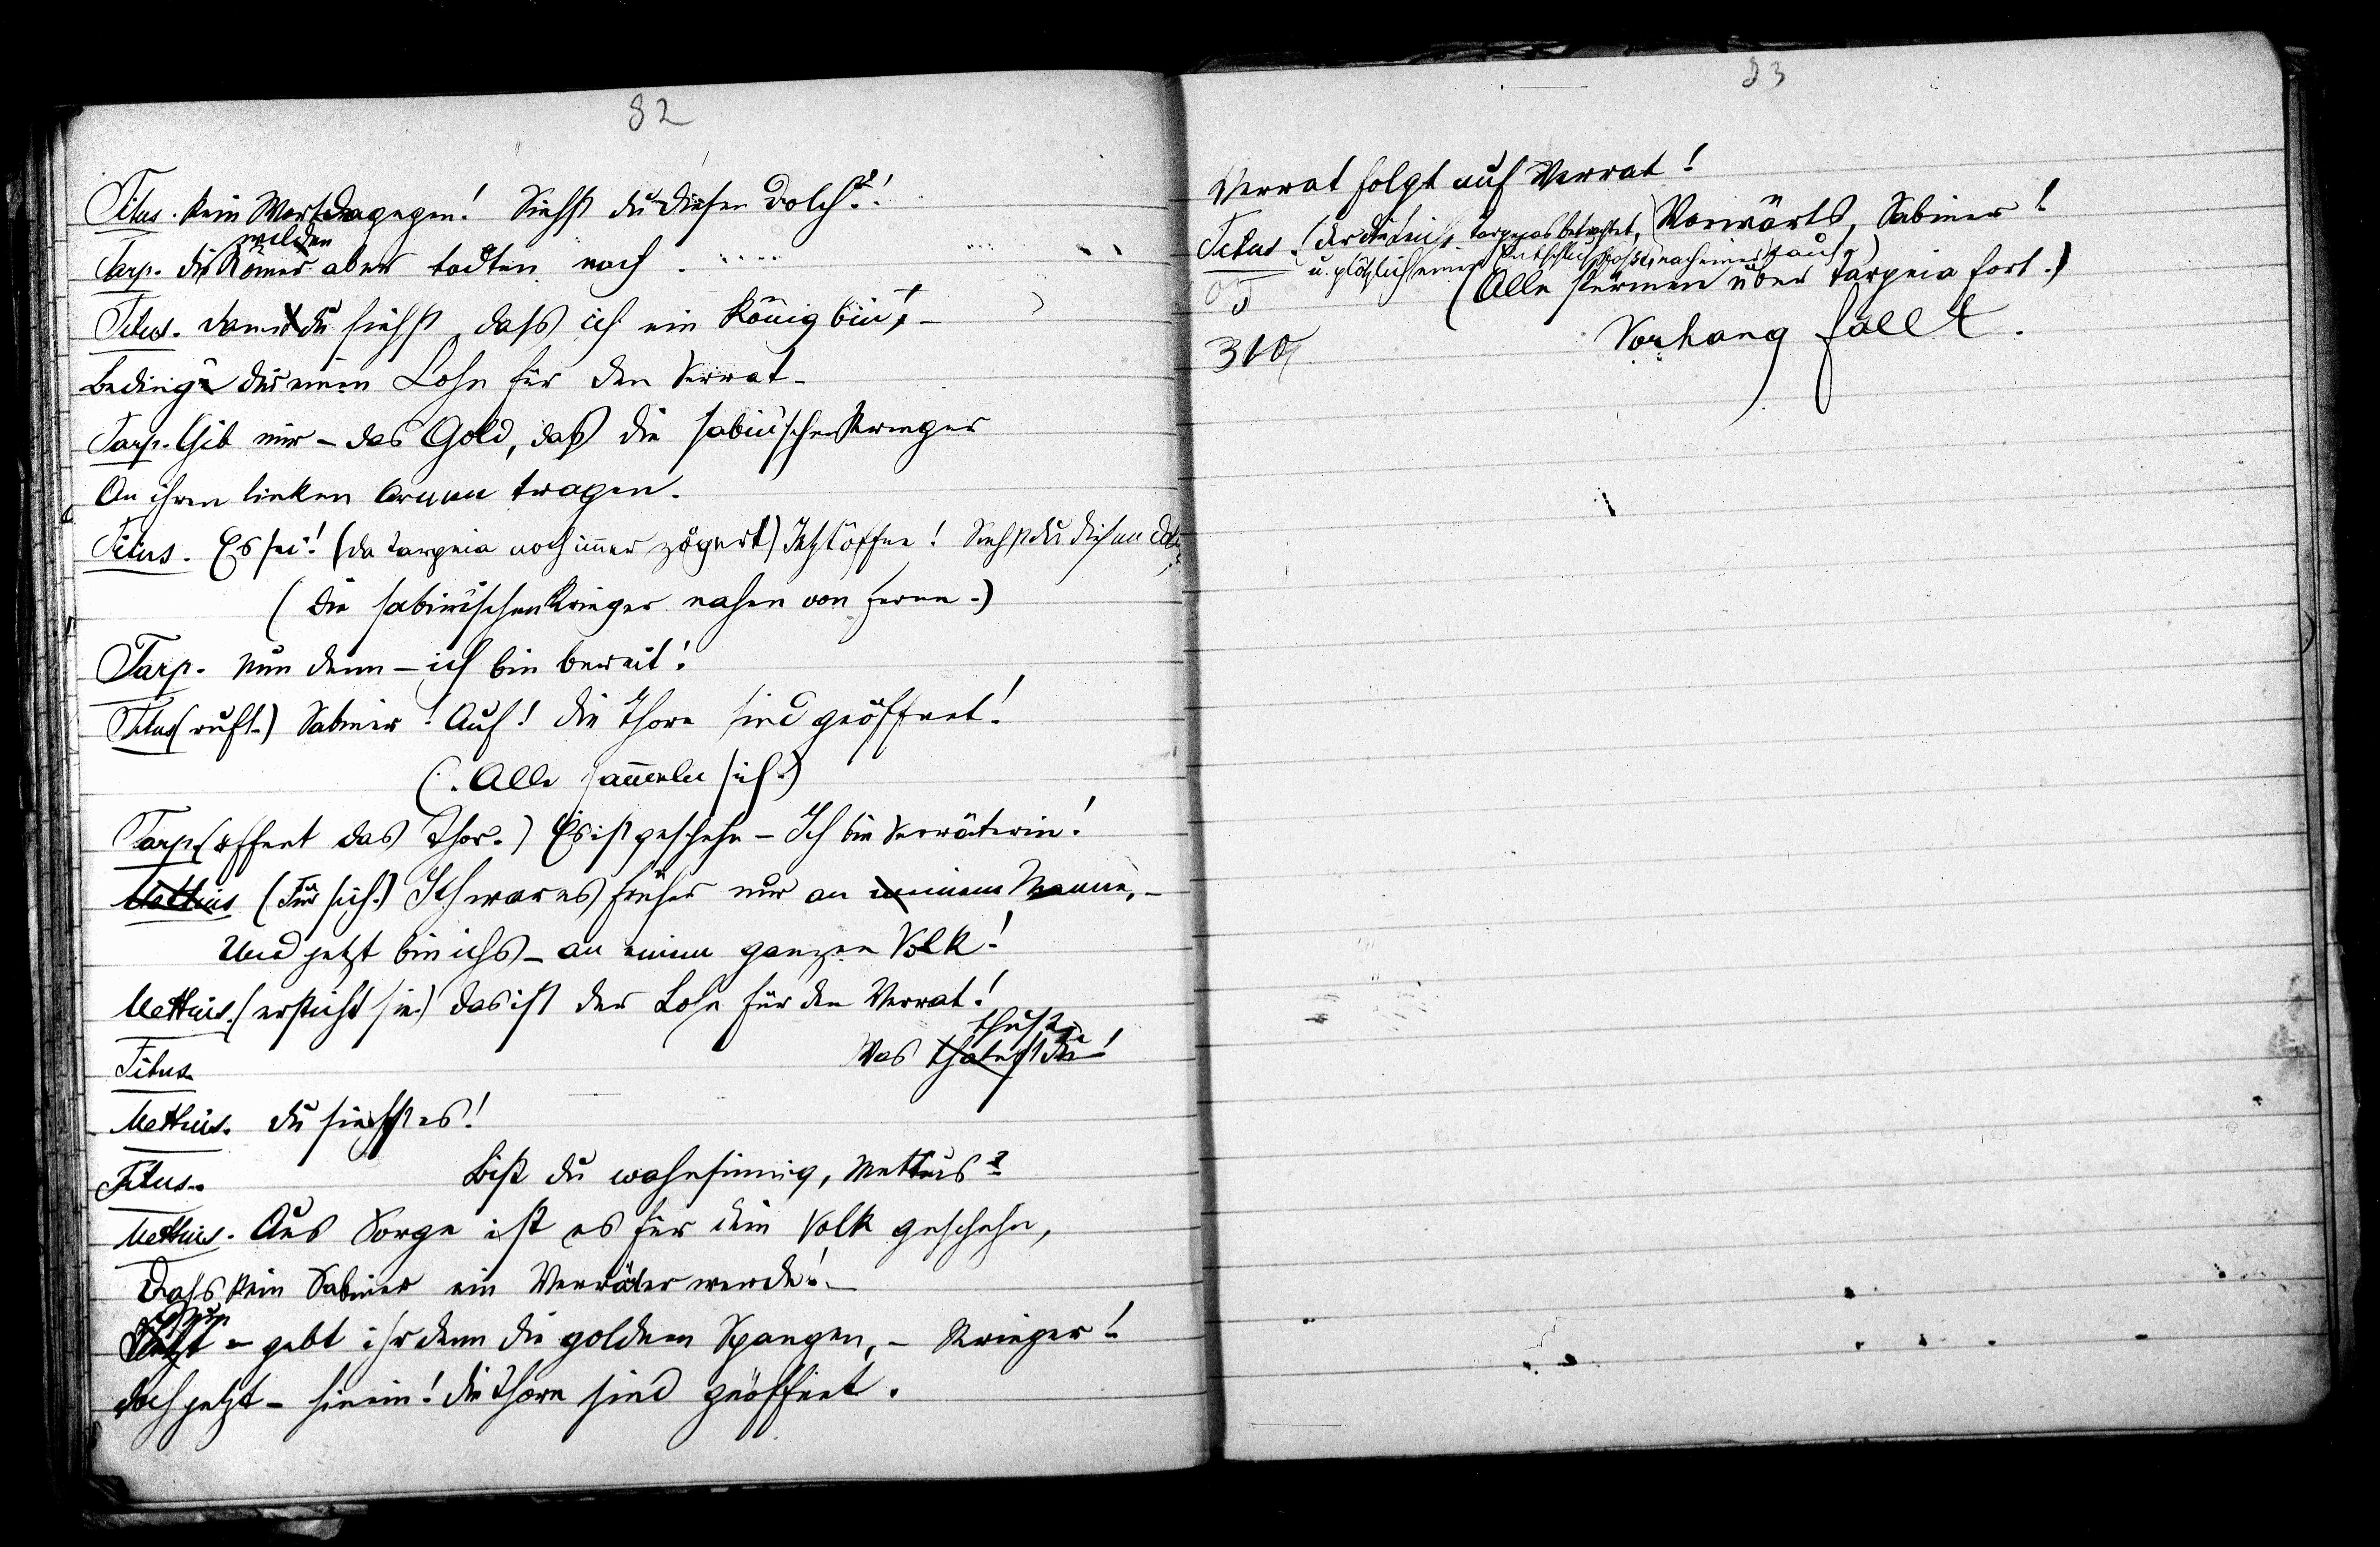 82
Titus. Kein Wort dagegen! Siehst du diesen Dolch?!
wilden
Tarp. die Römer aber tödten mich . . . . . .
Titus. Damit du siehst, dass ich ein König bin, –
Beding dir einen Lohn für den Verrat –
Tarp. Gib mir – das Gold, daß die sabinischen Krieger
An ihren linken Armen tragen.
Titus. Es sei! (da Tarpeia noch immer zögert) Jetzt öffne! Siehst du diesen
(Die sabinischen Krieger nahen von ferne.)
Tarp. Nun denn – ich bin bereit!
Titus (ruft.) Sabiner! Auf! Die Thore sind geöffnet!
(Alle sammeln sich.)
Tarp. (öffnet das Thor.) Es ist geschehn – Ich bin Verräterin!
Mettius (Für sich.) Ich war es früher nur an einem Manne, –
Und jetzt bin ichs – an einem ganzen Volk!
Mettius. (ersticht sie.) Das ist der Lohn für den Verrat!
thust
Titus Was thatest du!
Mettius. Du siehst es!
Titus. Bist du wahnsinnig, Mettius?
Mettius. Aus Sorge ist es für dein Volk geschehn,
Dass kein Sabiner ein Verräter werde! –
Nun
Jetzt – gebt ihr denn die goldnen Spangen, – Krieger!
Doch jetzt – hinein! Die Thore sind geöffnet.
83
Verrat folgt auf Verrat!
Titus. (der die Leiche Tarpejas betrachtet, Vorwärts, Sabiner!
u. plötzlich einen Entschluss
(Alle stürmen über Tarpeia fort.)
310
Vorhang fällt.